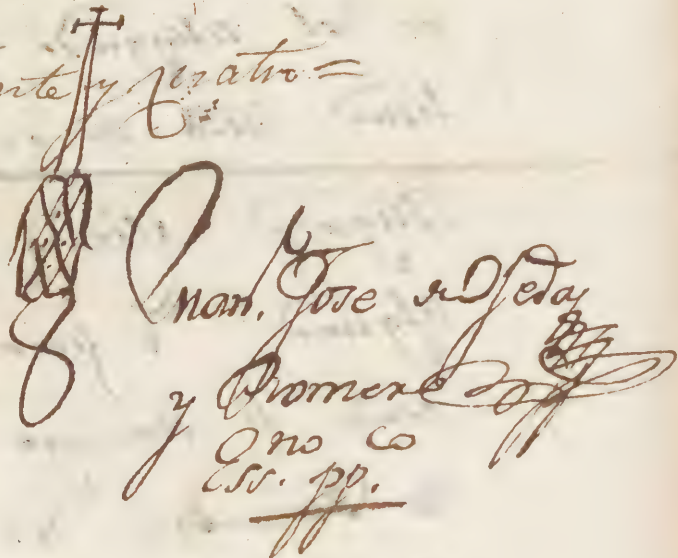 nte y quatro =
Juan, Jose de Ojeda
y Romero
Ono Co
Ess. pp.